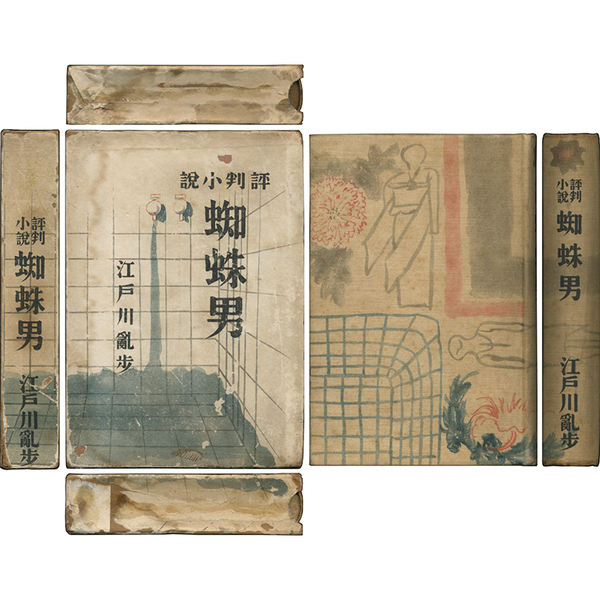 評判
小說
蜘蛛男
江戶川亂步
評判小說
蜘蛛男
江戶川亂步
評判
小說
蜘蛛男
江戶川亂步